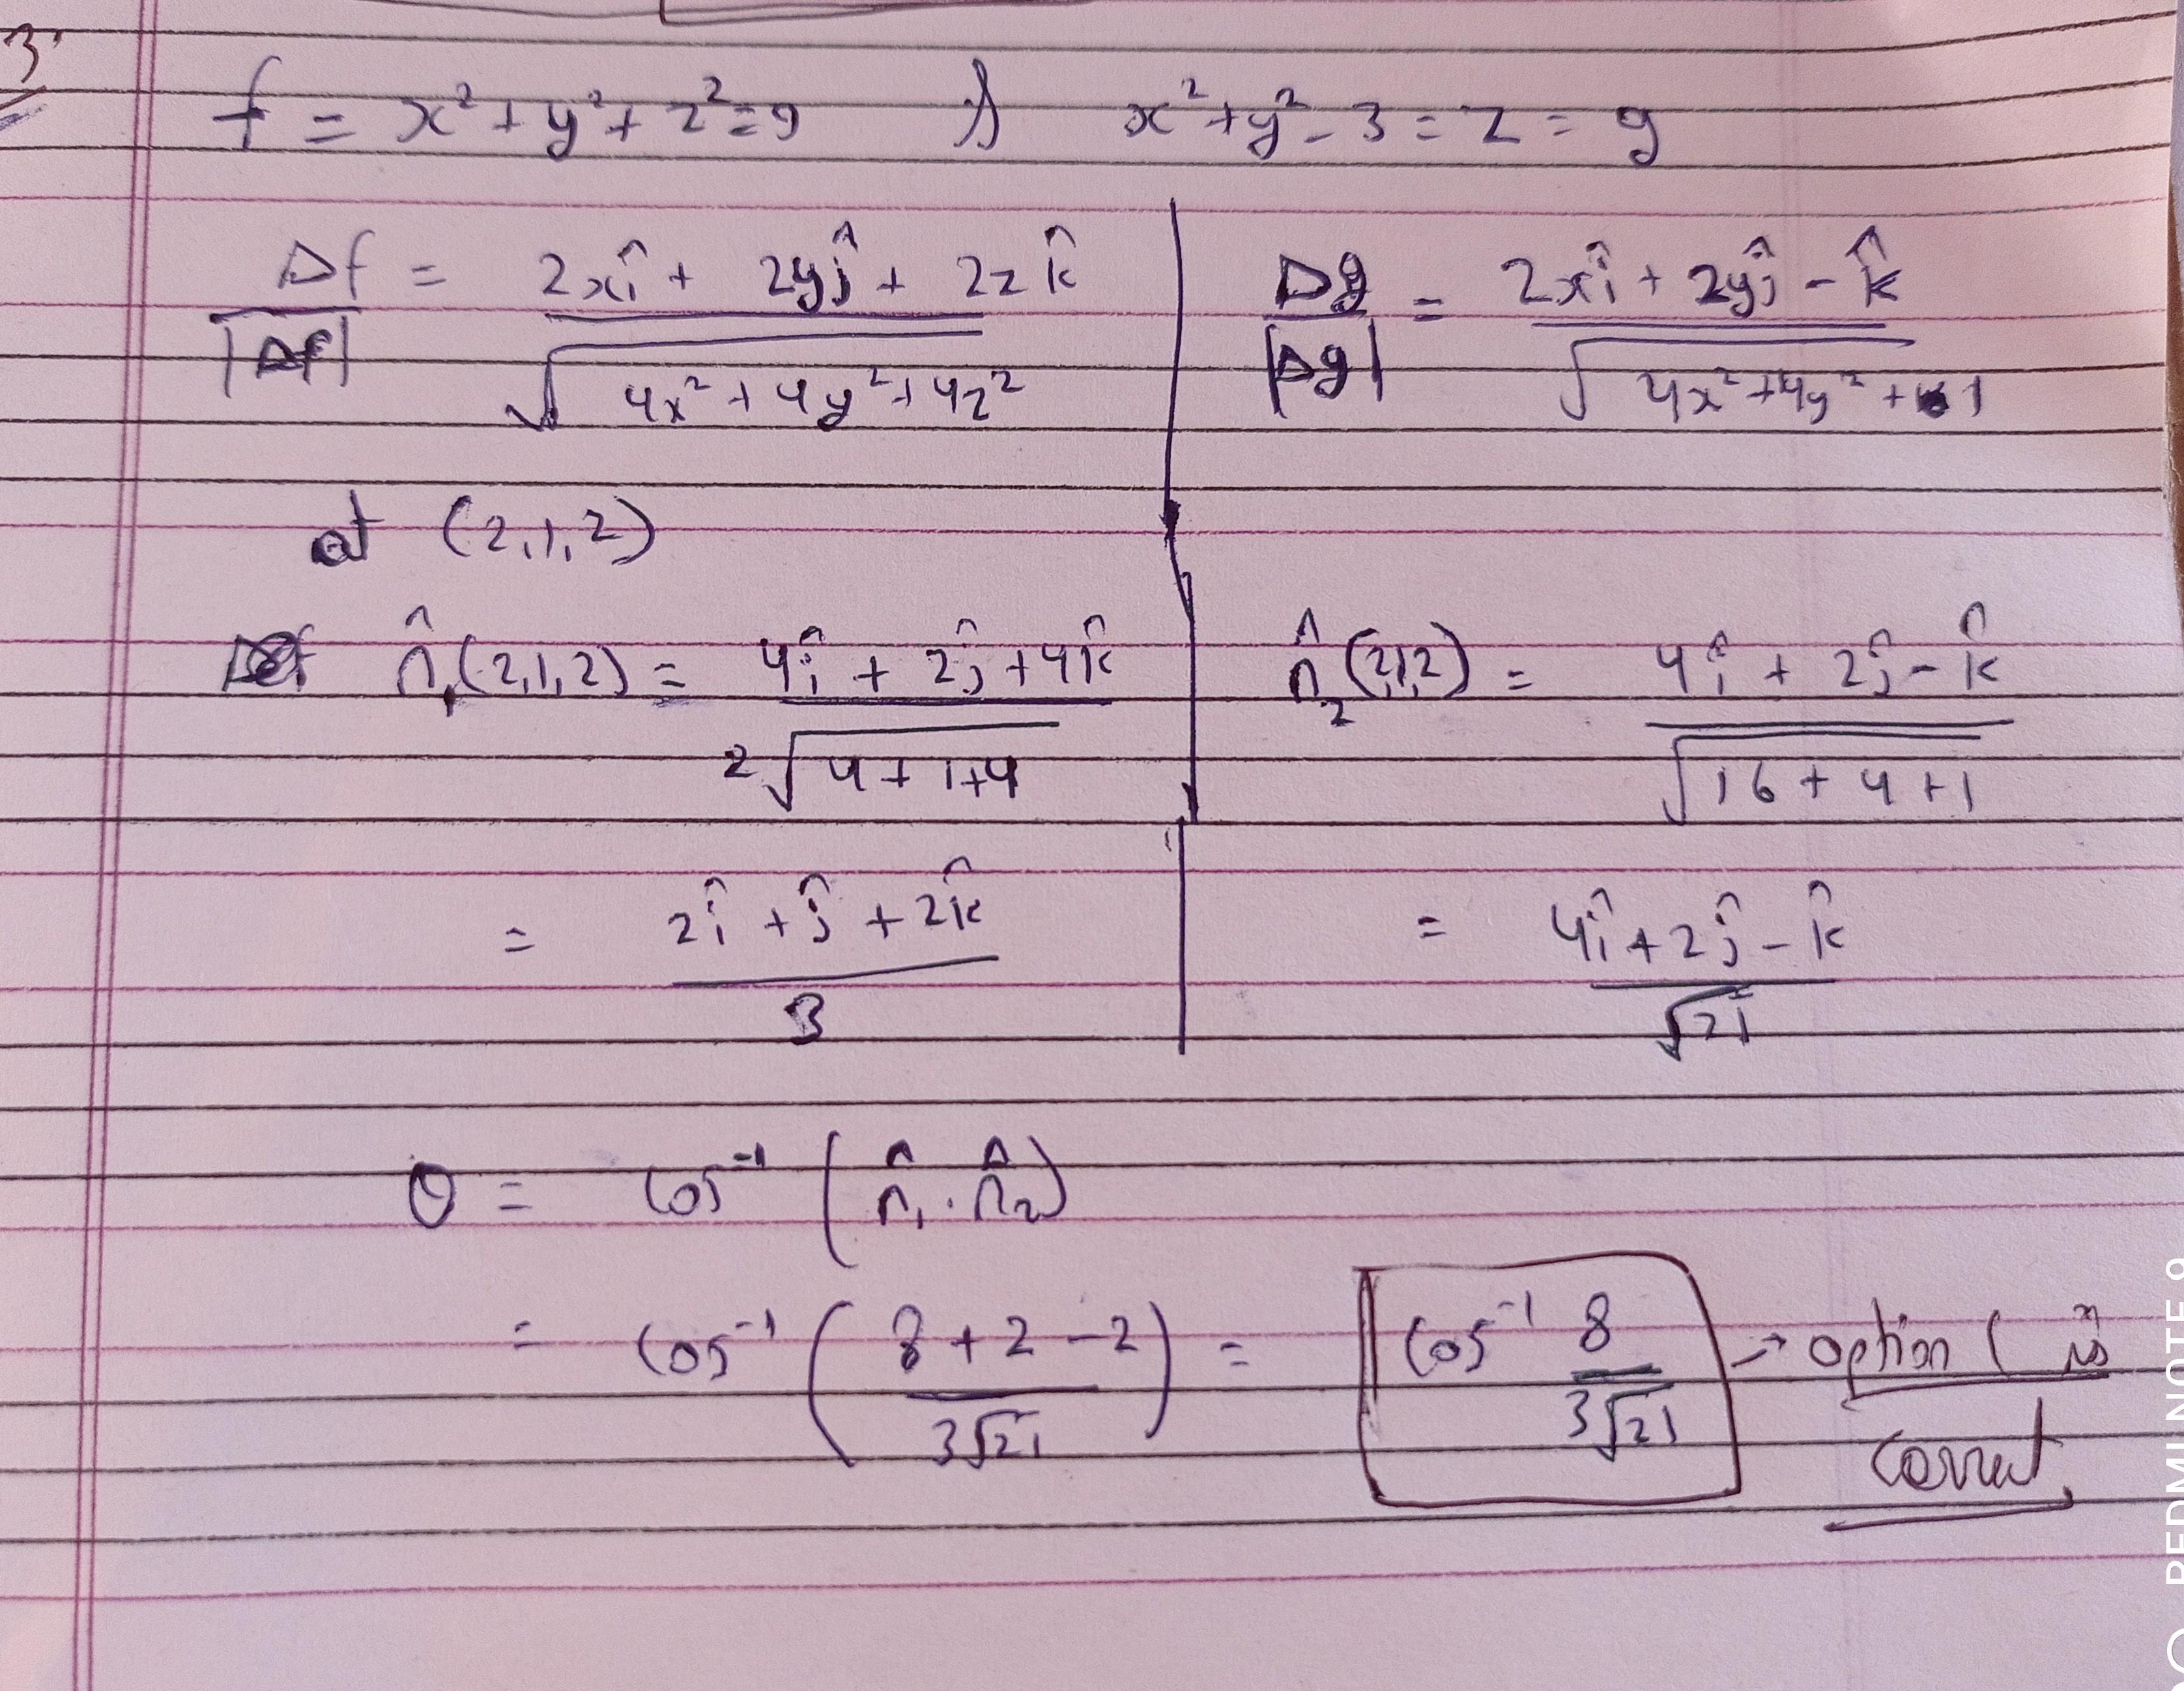 3.
f = x² + y² + z² = 9 & x² + y² - 3 = z = g
Δf/|Δf| = (2xî + 2yĵ + 2zk̂)/√(4x² + 4y² + 4z²)
Δg/|Δg| = (2xî + 2yĵ - k̂)/√(4x² + 4y² + 1)
at (2,1,2)
n̂₁(2,1,2) = (4î + 2ĵ + 4k̂)/(2√(4+1+4))
n̂₂(2,1,2) = (4î + 2ĵ - k̂)/√(16+4+1)
= (2î + ĵ + 2k̂)/3
= (4î + 2ĵ - k̂)/√21
θ = cos⁻¹(n̂₁ · n̂₂)
= cos⁻¹((8+2-2)/(3√21)) = cos⁻¹ 8/(3√21) → option C is
correct.
REDMI NOTE 8